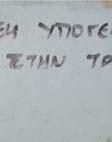 ΕΗ ΥΠΟΓΕ
ΣΤΗΝ ΤΡ